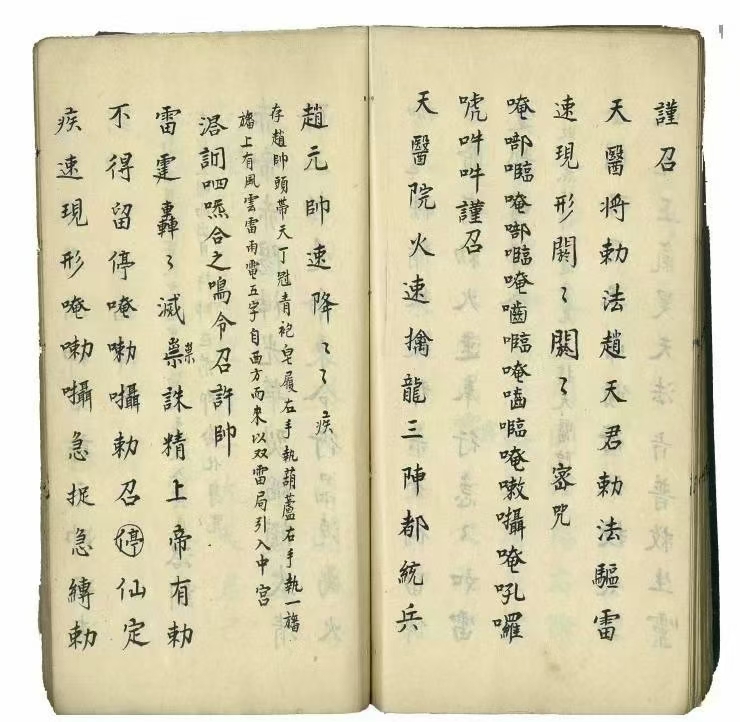 謹召
天醫將勅法趙天君勅法驅雷
速現形閼〻閼〻宻咒
唵㗐㘋唵㗐㘋唵嚙㘋唵嚙㘋唵噉囁唵吼囉
唬吽吽謹召
天醫院火速擒龍三陣都統兵
趙元帥速降〻〻疾
存趙帥頭帶天丁冠青袍皂履右手執葫蘆右手執一旛
旛上有風雲雷雨電五字自西方而來以双雷局引入中宮
合之鳴令召許帥
雷霆轟〻滅祟誅精上帝有勅
不得留停唵嘞囁勅召停仙定
疾速現形唵嘞囁急捉急縛勅